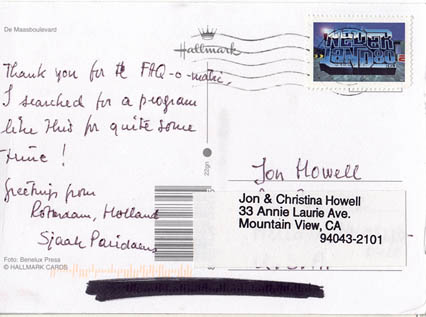 De Maasboulevard
Hallmark
NEDER
LAND80
Thank you for the FAQ-o-matic.
I searched for a program
like this for quite some
time!
Greetings from
Rotterdam, Holland
Sjaak Paridaens
Foto: Benelux Press
© HALLMARK CARDS
22gn
Jon Howell
Jon & Christina Howell
33 Annie Laurie Ave.
Mountain View, CA
94043-2101